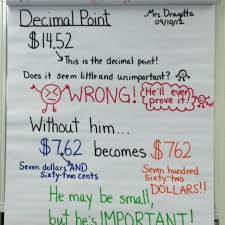 Decimal Point
Mrs. Dragotta
09/10/12
$14.52
This is the decimal point!
Does it seem little and unimportant?
WRONG! He'll even prove it!
Without him...
$7.62 becomes $762
Seven dollars AND
Sixty-two cents
Seven hundred
Sixty-two
DOLLARS!!
He may be small,
but he's IMPORTANT!